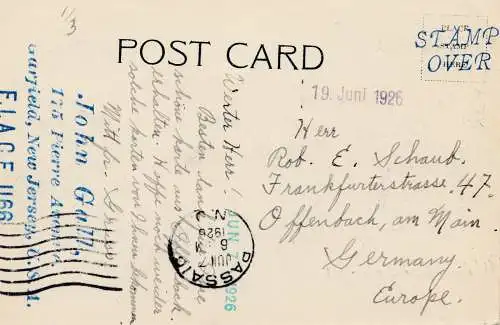 1/3
POST CARD
PLACE
STAMP
HERE
STAMP
OVER
19. Juni 1926
Herr
Rob. E. Schaub.
Frankfurterstrasse 47.
Offenbach, am Main.
Germany.
Europe.
Werter Herr!
Besten Dank für
schöne Karte aus Offenbach
erhalten. Hoffe noch weider
solche karten von Ihnen bekommen
Mitt fr. Gruss
John Gall,
175 Pierre Avenue
Garfield, New Jersey, U. S. A.
F.I.A.C.E. 1166
JUN 1926
PASSAIC
N.J.
JUN 7
6 PM
1926